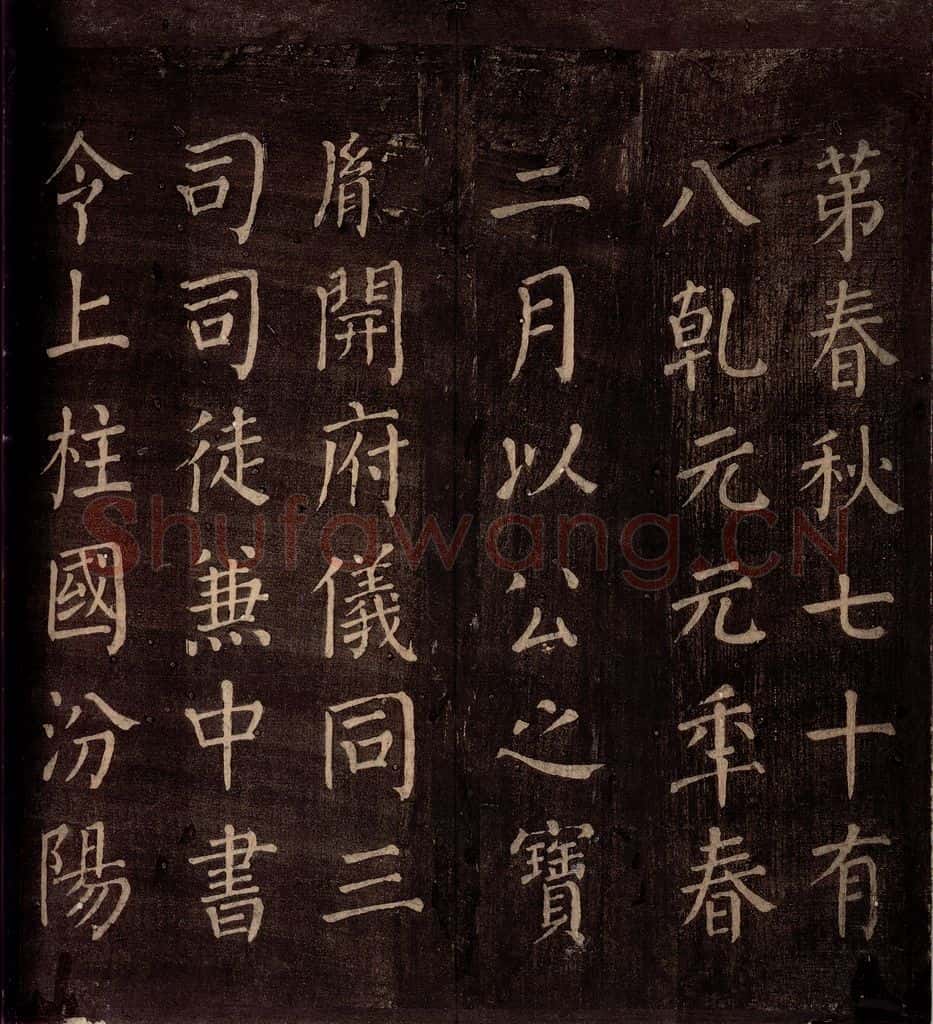 苐春秋七十有
八乹元元年春
二月以公之寶
胤開府儀同三
司司徒兼中書
令上柱國汾陽
Shufawang.CN